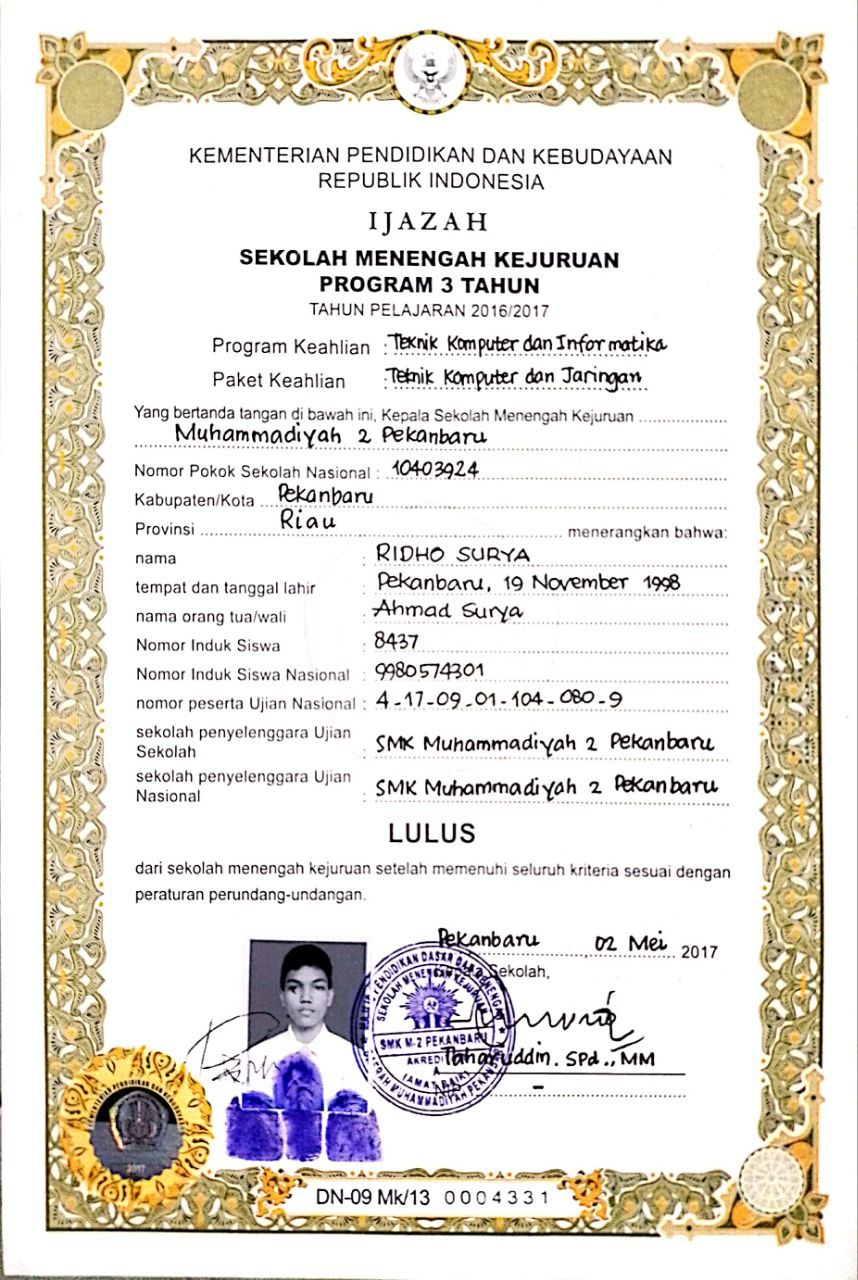 KEMENTERIAN PENDIDIKAN DAN KEBUDAYAAN
REPUBLIK INDONESIA
IJAZAH
SEKOLAH MENENGAH KEJURUAN
PROGRAM 3 TAHUN
TAHUN PELAJARAN 2016/2017
Program Keahlian : Teknik Komputer dan Informatika
Paket Keahlian : Teknik Komputer dan Jaringan
Yang bertanda tangan di bawah ini, Kepala Sekolah Menengah Kejuruan
Muhammadiyah 2 Pekanbaru
Nomor Pokok Sekolah Nasional : 10403924
Kabupaten/Kota Pekanbaru
Provinsi Riau menerangkan bahwa:
nama : RIDHO SURYA
tempat dan tanggal lahir : Pekanbaru, 19 November 1998
nama orang tua/wali : Ahmad Surya
Nomor Induk Siswa : 8437
Nomor Induk Siswa Nasional : 9980574301
nomor peserta Ujian Nasional : 4-17-09-01-104-080-9
sekolah penyelenggara Ujian
Sekolah : SMK Muhammadiyah 2 Pekanbaru
sekolah penyelenggara Ujian
Nasional : SMK Muhammadiyah 2 Pekanbaru
LULUS
dari sekolah menengah kejuruan setelah memenuhi seluruh kriteria sesuai dengan
peraturan perundang-undangan.
Pekanbaru 02 Mei 2017
Sekolah,
SEKOLAH MENENGAH KEJURUAN
SMK M-2 PEKANBARU
A
(AMAT BAIK)
Taharuddin. SPd., MM
-
2017
DN-09 Mk/13 0004331